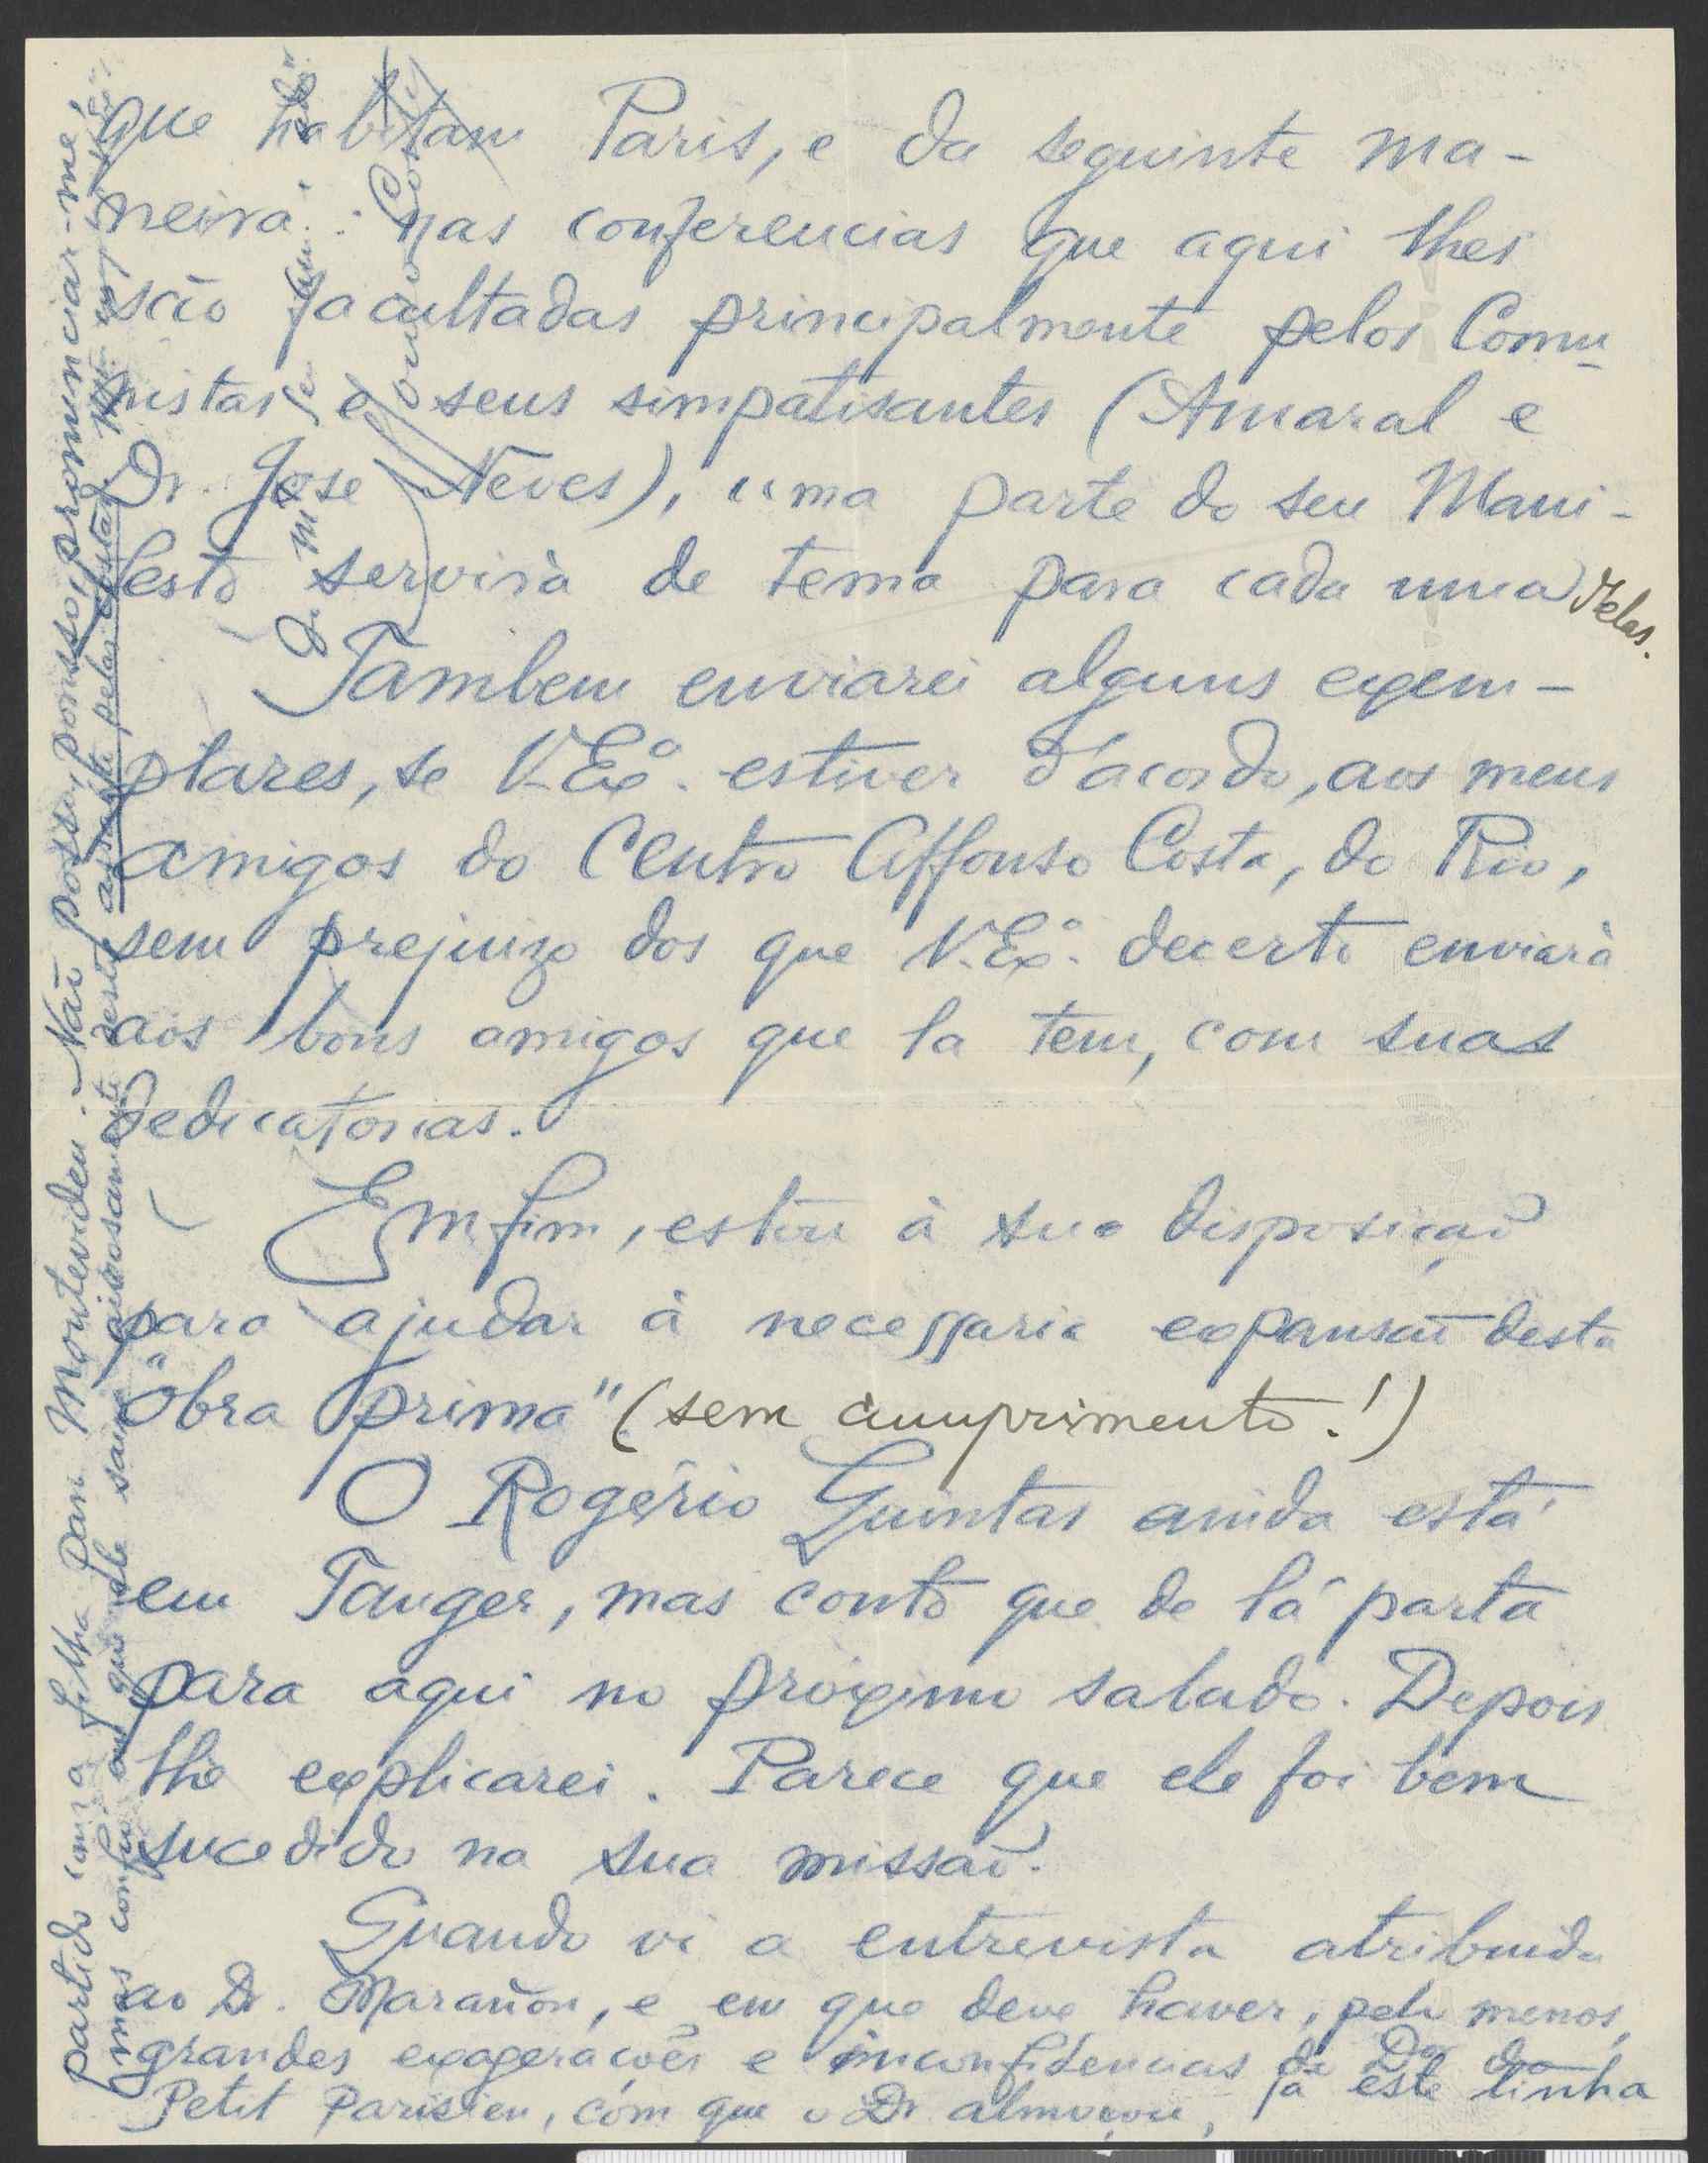 que habitam Paris, e da seguinte ma-
neira: nas conferencias que aqui lhes
são facultadas principalmente pelos Comu
nistas e seus simpatisantes (Amaral e
Dr. Jose Neves), uma parte do seu Mani-
festo servirà de tema para cada uma delas.
Tambem enviarei alguns exem-
plares, se V. Exª. estiver d'acordo, aos meus
amigos do Centro Affonso Costa, do Rio,
sem prejuizo dos que V. Exª. decerto enviarà
aos bons amigos que la tem, com suas
dedicatorias.
Emfim, estou à sua disposição
para ajudar à necessaria expansão desta
"obra prima" (sem cumprimento!)
O Rogério Quintas ainda está
em Tanger, mas conto que de lá parta
para aqui no proximo sabado. Depois
lhe explicarei. Parece que ele foi bem
sucedido na sua missão.
Quando vi a entrevista atribuida
ao Dr. Marañon, e em que deve haver, pelo menos,
grandes exagerações e inconfidencias do Dor do
Petit Parisien, com que o Dr. almoçou, já este tinha
partido com a filha para Montevideu. Não posso, por isso, pronunciar-me,
mas confio em que ele saia airosamente deste assalte pelas costas.
De m
Affonso Costa